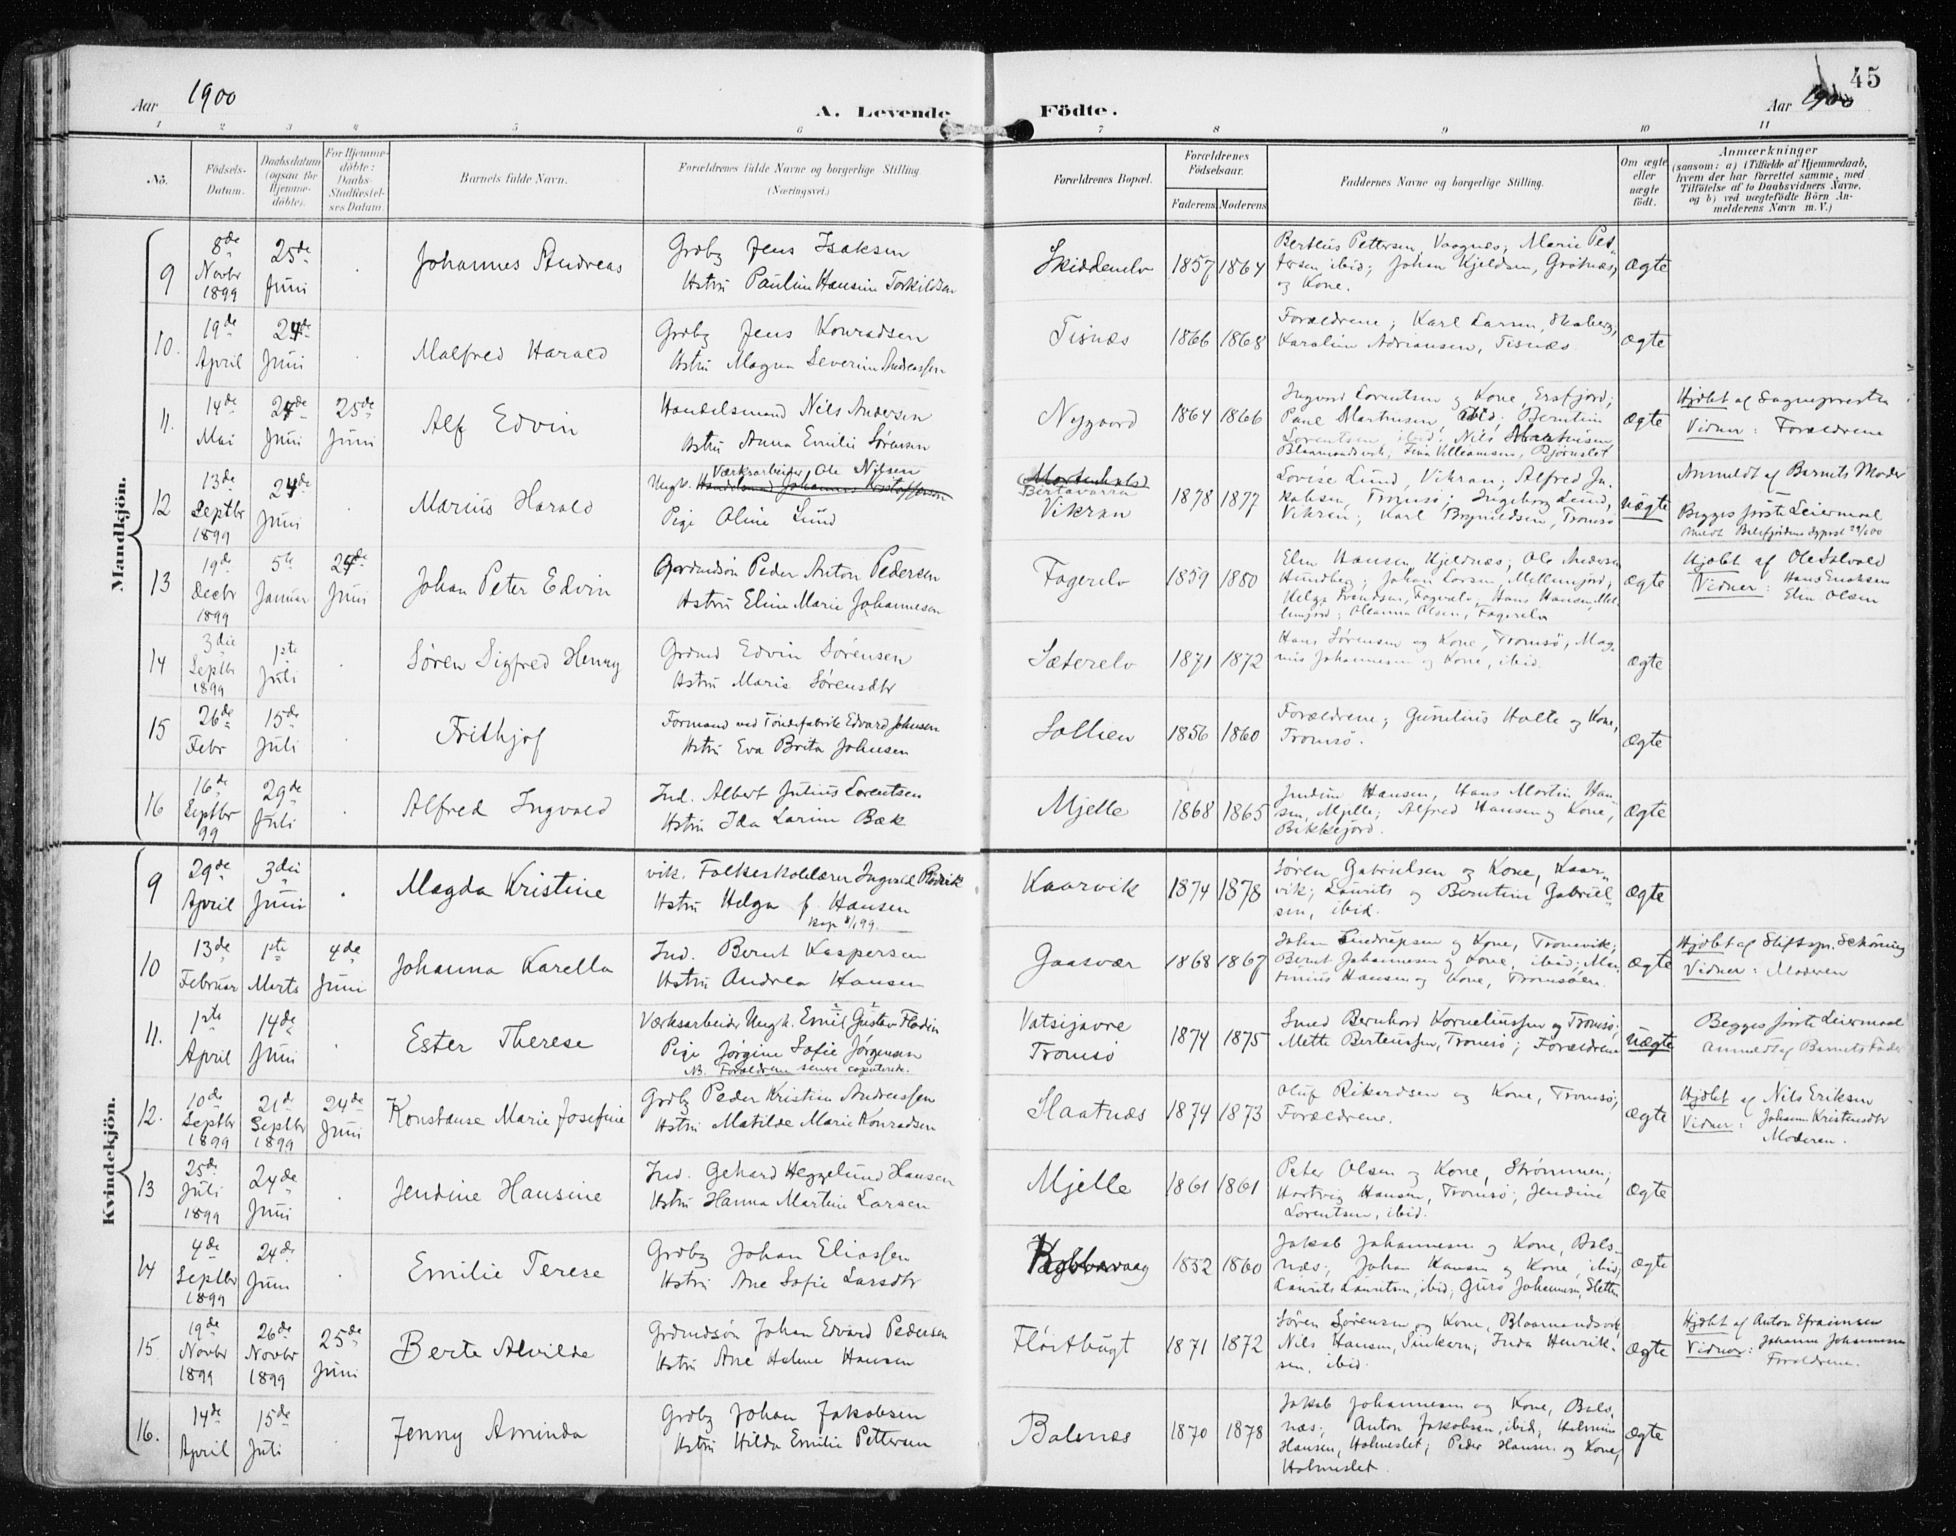 45
Aar 1900
A. Levende Födte.
Aar 1900
1 2 3 4 5 6 7 8 9 10 11
No. Födsels-Datum. Daabsdatum (ogsaa for Hjemme-döbte). For Hjemme-döbte: Daabs-Stadfæstel-ses Datum. Barnets fulde Navn. Forældrenes fulde Navne og borgerlige Stilling. (Næringsvei.) Forældrenes Bopæl. Forældrenes Födselsaar. Faderens Moderens Faddernes Navne og borgerlige Stilling. Om ægte eller uægte födt. Anmærkninger (saasom: a) i Tilfælde af Hjemmedaab, hvem der har forrettet samme, med Tilföielse af to Daabsvidners Navne, og b) ved uægtefödte Börn An-melderens Navn m. V.)
Mandkjön.
9 8de Novbr 1899 25de Juni Johannes Andreas
Grdbg Jens Isaksen
Hstru Pauline Hansine Torkildsen
Skiddenelv 1857 1864
Bertëus Pettersen, Vaagnes; Marie Pet-
tersen ibid; Johan Kjeldsen, Grötnæs,
og Kone.
Ægte
10. 19de April 24de Juni Malfred Harald
Grdbg Jens Konradsen
Hstru Magna Severine Andreassen
Tisnæs 1866 1868
Forældrene; Karl Larsen,
Karoline Adriansen, Tisnæs
Ægte
11. 14de Mai 24de Juni 25de Juni Alf Edvin
Handelsmand Nils Andersen
Hstru Anna Emilie Sörensen
Nygaard 1864 1866
Ingvard Lorentsen og Kone, Ersfjord;
Paul Martinsen, ibid; Berntine
Lorentsen, ibid; Nils Martinsen,
Blaamandsvik,
Ægte
Hjdbt af Sognepresten
Vidner: Forældrene
12 13de Septbr 1899 24de Juni Marius Harald
Værksarbeider, Ole Nilsen
Ungk. Handelsmd Johannes Kristoffersen
Pige Oline Lund
Bertavarra
Vikran 1878 1877
Lovise Lund, Vikran; Alfred Ja-
kobsen Tromsö; Ingeborg Lund,
Vikran; Karl Brynildsen, Tromsö
Uægte
Anmeldt af Barnets Moder
Begges förste Leiermaal
13 19de Decbr 1899 5te Januar 24de Juni Johan Peter Edvin
Grdmdsön Peder Anton Pedersen
Hstru Eline Marie Johannesen
Fagerelv 1859 1880
Elen Hansen, Kjeldnæs; Ole Andersen
Hundberg; Johan Larsen, Mellemjord;
Helga Svendsen, Fagerelv; Hans Hansen, Mel-
lemjord; Oleanna Olsen, Fagerelv
Ægte
Hjdbt af Ole Salvold
Vidner: Hans Enoksen
Elen Olsen
14 3die Septbr 1899 1ste Juli Sören Sigfred Henry
Grdmd Edvin Sörensen
Hstru Marie Sörensdtr
Sæterelv 1871 1872
Hans Sörensen og Kone, Tromsö; Mag-
nus Johannesen og Kone, ibid.
Ægte
15 26de Febr 15de Juli Frithjof
Formand ved Töndefabrik Edvard Johnsen
Hstru Eva Brita Johnsen
Sollien 1856 1860
Forældrene; Gunelius Holte og Kone,
Tromsö.
Ægte
16 16de Septbr 99 29de Juli Alfred Ingvald
Ind. Albert Julius Lorentsen
Hstru Ida Larine Bæk
Mjelle 1868 1865
Jendine Hansen, Hans Martin Han-
sen, Mjelle; Alfred Hansen og Kone,
Bikkejord.
Ægte
Kvindekjön.
9 29de April 3die Juni Magda Kristine
vik. Folkeskolelærer Ingvald Rödvik
Hstru Helga f. Hansen
Kaarvik 1874 1878
Sören Gabrielsen og Kone, Kaar-
vik; Laurits og Berntine Gabriel-
sen, ibid.
Ægte
10 13de Februar 1ste Marts 4de Juni Johanna Karella
Ind. Bernt Kaspersen
Hstru Andrea Hansen
Gaasvær 1868 1867
Johan Endrupsen og Kone, Tromvik;
Bernt Johannesen og Kone, ibid; Mar-
tinius Hansen og Kone, Tromsöen.
Ægte
Hjdbt af Stiftspr. Schörning
Vidner: Moderen
11. 1ste April 14de Juni Ester Therese
Værksarbeider Ungk. Emil Gustav Flodin
Pige Jörgine Sofie Jörgensen
NB. Forældrene senere copulerede.
Vatsijavre
Tromsö 1874 1875
Smed Bernhard Korneliussen og Tromsö;
Mette Berteussen, Tromsö; Forældrene
Uægte
Begges förste Leiermaal
Anmeldt af Barnets Fader
12. 10de Septbr 1899 21de Septbr 1899 24de Juni Konstanse Marie Josefine
Grdbg Peder Kristian Andreassen
Hstru Matilde Marie Konradsen
Slaatnæs 1874 1873
Oluf Rikardsen og Kone, Tromsö,
Forældrene.
Ægte
Hjdbt af Nils Eriksen
Vidner: Johanna Kristensdtr
Moderen.
13 25de Juli 1899 24de Juni Jendine Hansine
Ind. Gehard Heggelund Hansen
Hstru Hanna Martine Larsen
Mjelle 1861 1861
Peter Olsen og Kone, Strömmen;
Hartvig Hansen, Tromsö; Jendine
Lorentsen, ibid.
Ægte
14 4de Septbr 1899 24de Juni Emilie Terese
Grdbg Johan Eliassen
Hstru Ane Sofie Larsdtr
Kobbevaag 1852 1860
Jakob Johannesen og Kone, Bals-
næs; Johan Hansen og Kone, ibid;
Laurits Lauritsen, ibid; Guro Johannesen, Sletten
Ægte
15 19de Novbr 1899 26de Novbr 1899 25de Juni Berte Alvilde
Grdmdsön Johan Edvard Pedersen
Hstru Ane Helene Hansen
Flöstbugt 1871 1872
Sören Sörensen og Kone, Blaamandsvik;
Nils Hansen, Finkern; Inda Henrik-
sen, ibid.
Ægte
Hjdbt af Anton Efraimsen
Vidner: Johanna Johannesen
Forældrene.
16. 14de April 15de Juli Jenny Aminda
Grdbg Johan Jakobsen
Hstru Hilda Emilie Pettersen
Balsnæs 1870 1878
Jakob Johannesen og Kone, Bals-
næs; Anton Jakobsen, ibid; Helmine
Hansen, Holmeslet; Peder Hansen og Kone,
Holmeslet.
Ægte